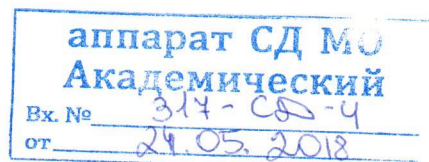 аппарат СД МО
Академический
Вх. № 317-СД-4
от 24.05.2018